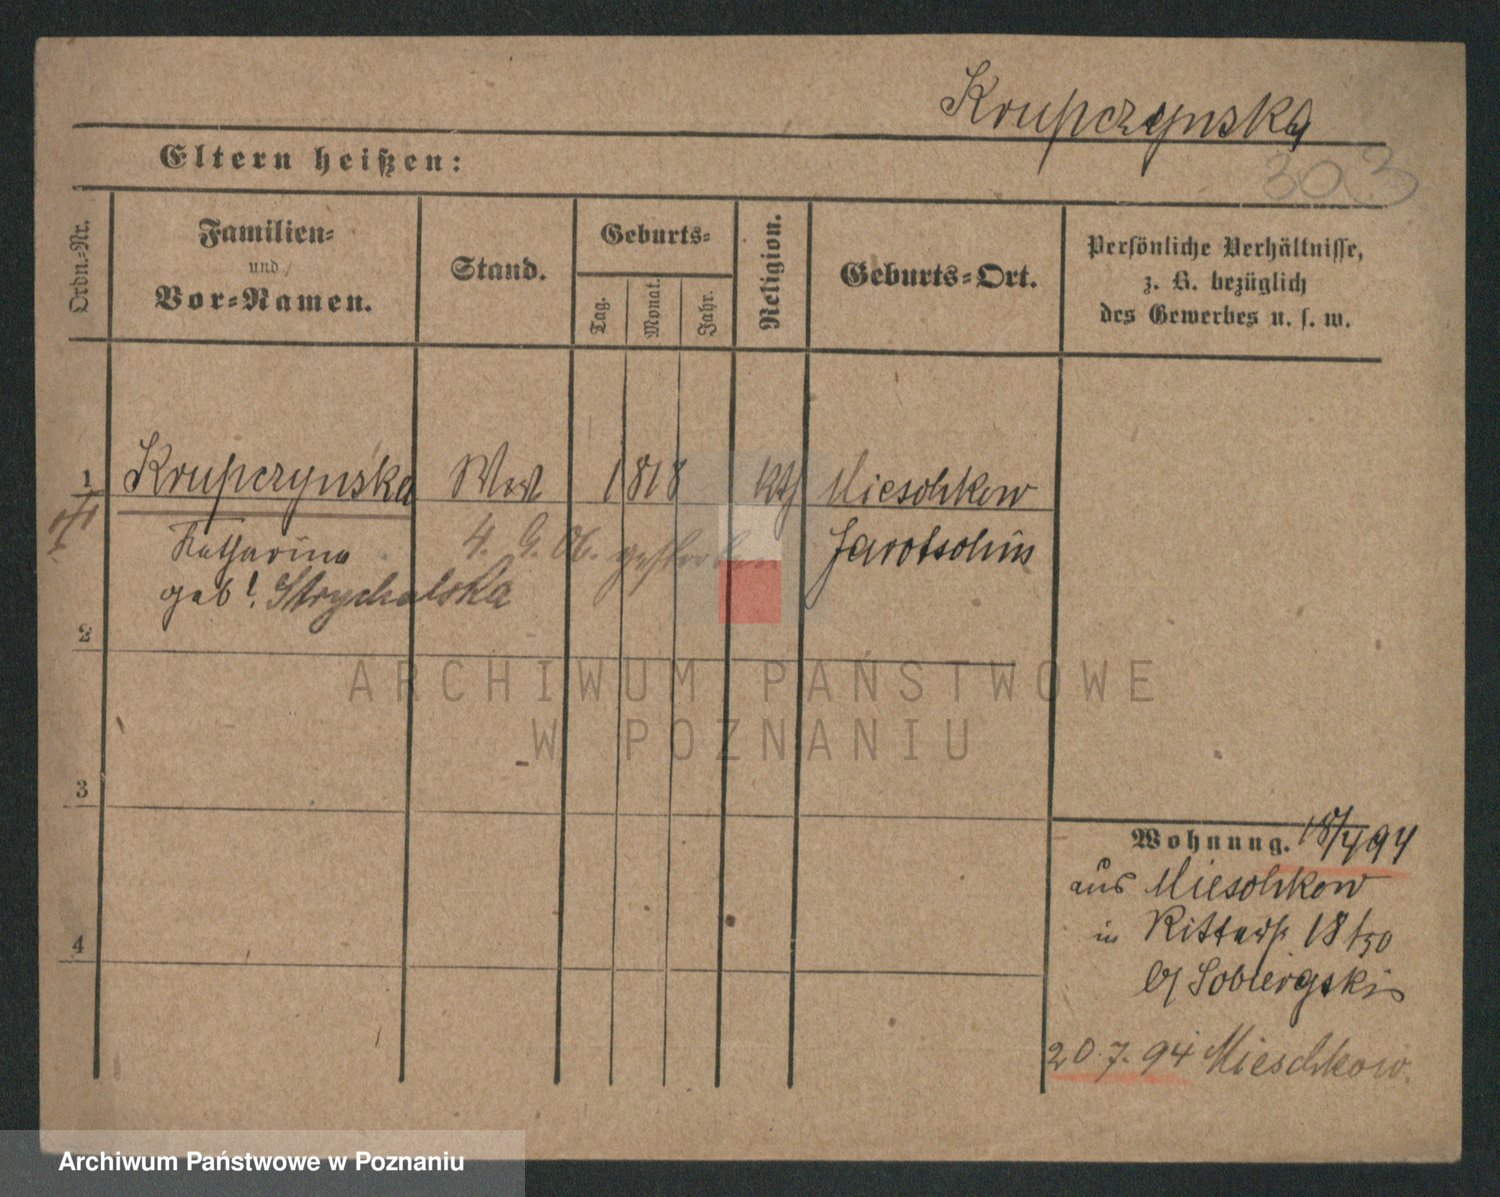 Krupczynska
303
Eltern heißen:
Ordn.-Nr.
Familien-
und
Vor-Namen.
Stand.
Geburts-
Tag.
Monat.
Jahr.
Religion.
Geburts-Ort.
Persönliche Verhältnisse,
z. B. bezüglich
des Gewerbes u. s. w.
1 Krupczynska Wwe 1818 kth Mieschkow
Katharina 4. 9. 06. gestorben Jarotschin
geb. Strychalska
2
ARCHIWUM PAŃSTWOWE
W POZNANIU
3
Wohnung. 18/4 94
aus Mieschkow
in Ritterstr 18/50
b/ Sobiergski
4
20.7.94 Mieschkow.
Archiwum Państwowe w Poznaniu